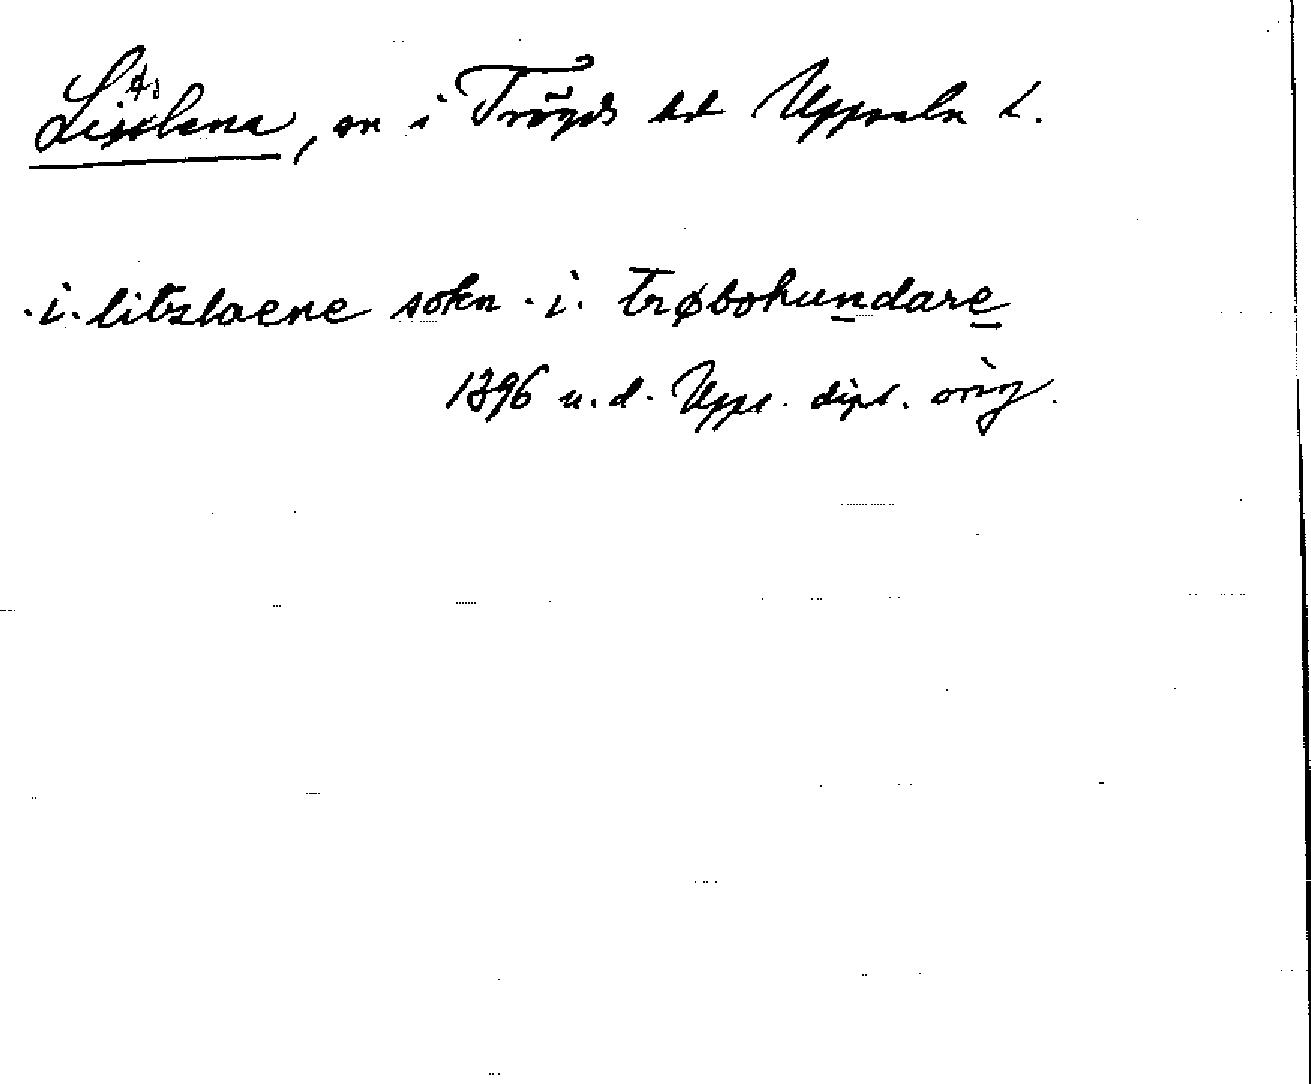 Litslena, sn i Trögds hd Uppsala l.
.i. litzslaene sokn .i. trøbohundare
1396 u.d. Upps. dipl. orig.